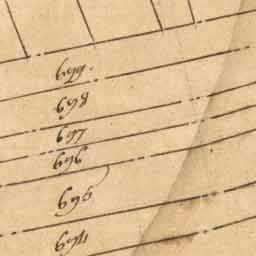 699.
698
697
696
695
694